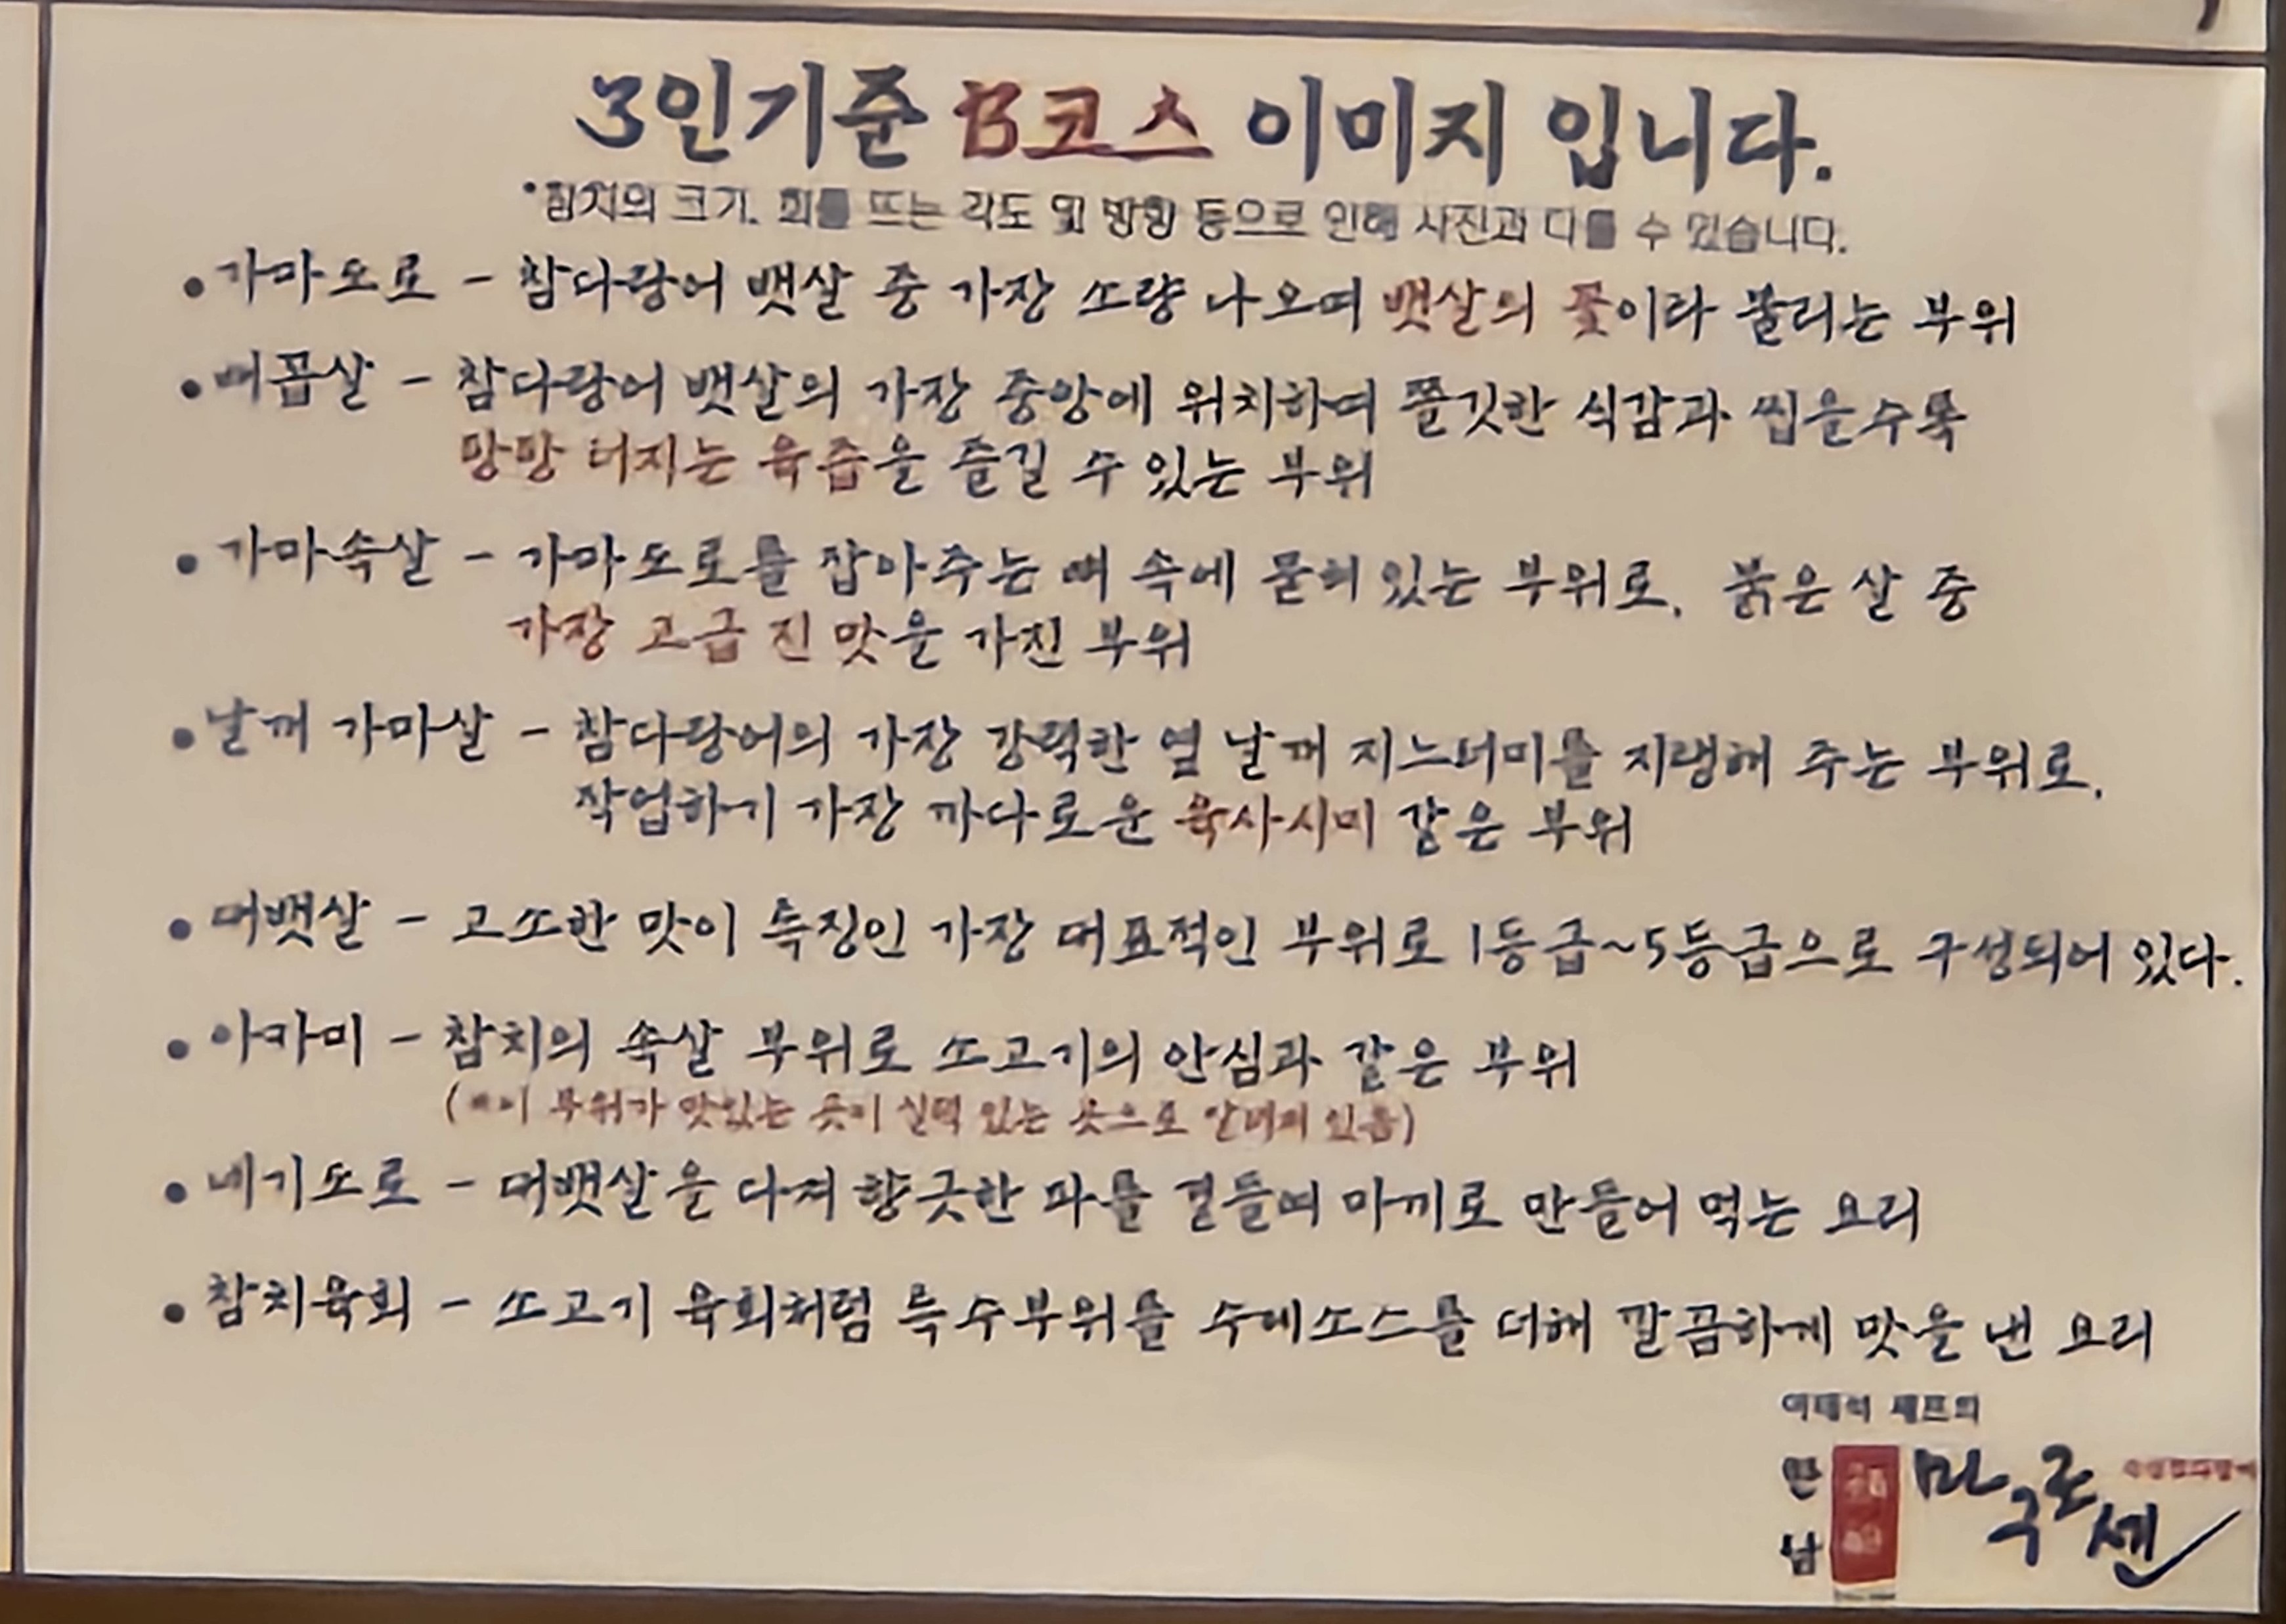 3인기준 B코스 이미지 입니다.
*참치의 크기, 회를 뜨는 각도 및 방향 등으로 인해 사진과 다를 수 있습니다.
• 가마도로 - 참다랑어 뱃살 중 가장 소량 나오며 뱃살의 꽃이라 불리는 부위
• 배꼽살 - 참다랑어 뱃살의 가장 중앙에 위치하며 쫄깃한 식감과 씹을수록
팡팡 터지는 육즙을 즐길 수 있는 부위
• 가마속살 - 가마도로를 잡아주는 뼈 속에 묻혀있는 부위로, 붉은 살 중
가장 고급진 맛을 가진 부위
• 날개 가마살 - 참다랑어의 가장 강력한 옆 날개 지느러미를 지탱해 주는 부위로,
작업하기 가장 까다로운 육사시미 같은 부위
• 대뱃살 - 고소한 맛이 특징인 가장 대표적인 부위로 1등급~5등급으로 구성되어 있다.
• 아카미 - 참치의 속살 부위로 소고기의 안심과 같은 부위
(*이 부위가 맛있는 곳이 실력 있는 곳으로 알려져 있음)
• 네기도로 - 대뱃살을 다져 향긋한 파를 곁들여 마끼로 만들어 먹는 요리
• 참치육회 - 소고기 육회처럼 특수부위를 수제소스를 더해 깔끔하게 맛을 낸 요리
셰프의
연남
마구로센